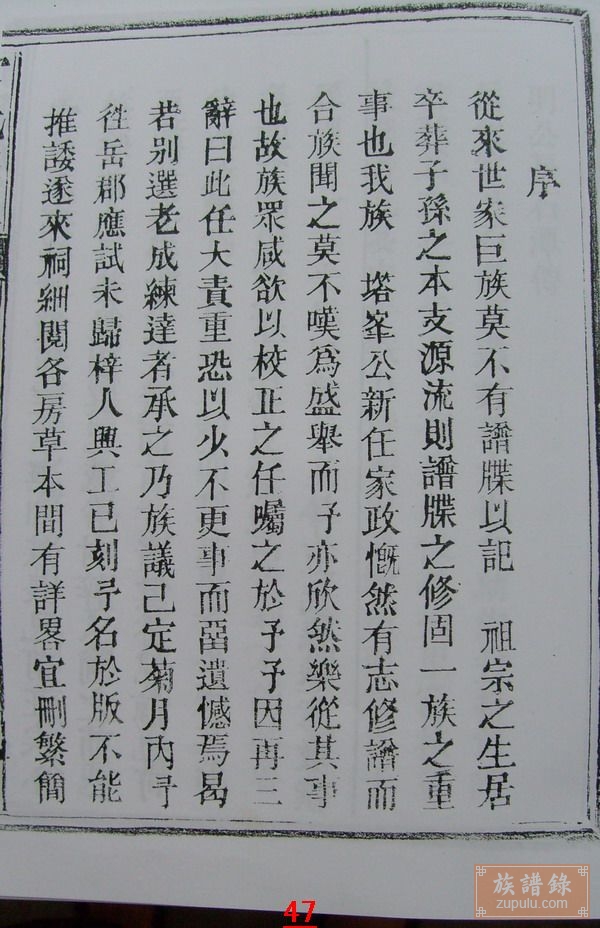 序
從來世家巨族莫不有譜牒以記　祖宗之生居
卒葬子孫之本支源流則譜牒之修固一族之重
事也我族　塔峯公新任家政慨然有志修譜而
合族聞之莫不嘆爲盛舉而予亦欣然樂從其事
也故族眾咸欲以校正之任囑之於予予因再三
辭曰此任大責重恐以少不更事而畱遺憾焉曷
若别選老成練達者承之乃族議已定菊月內予
徃岳郡應試未歸梓人興工已刻予名於版不能
推諉遂來祠細閱各房草本間有詳畧宜刪繁簡
族譜錄
zupulu.com
47